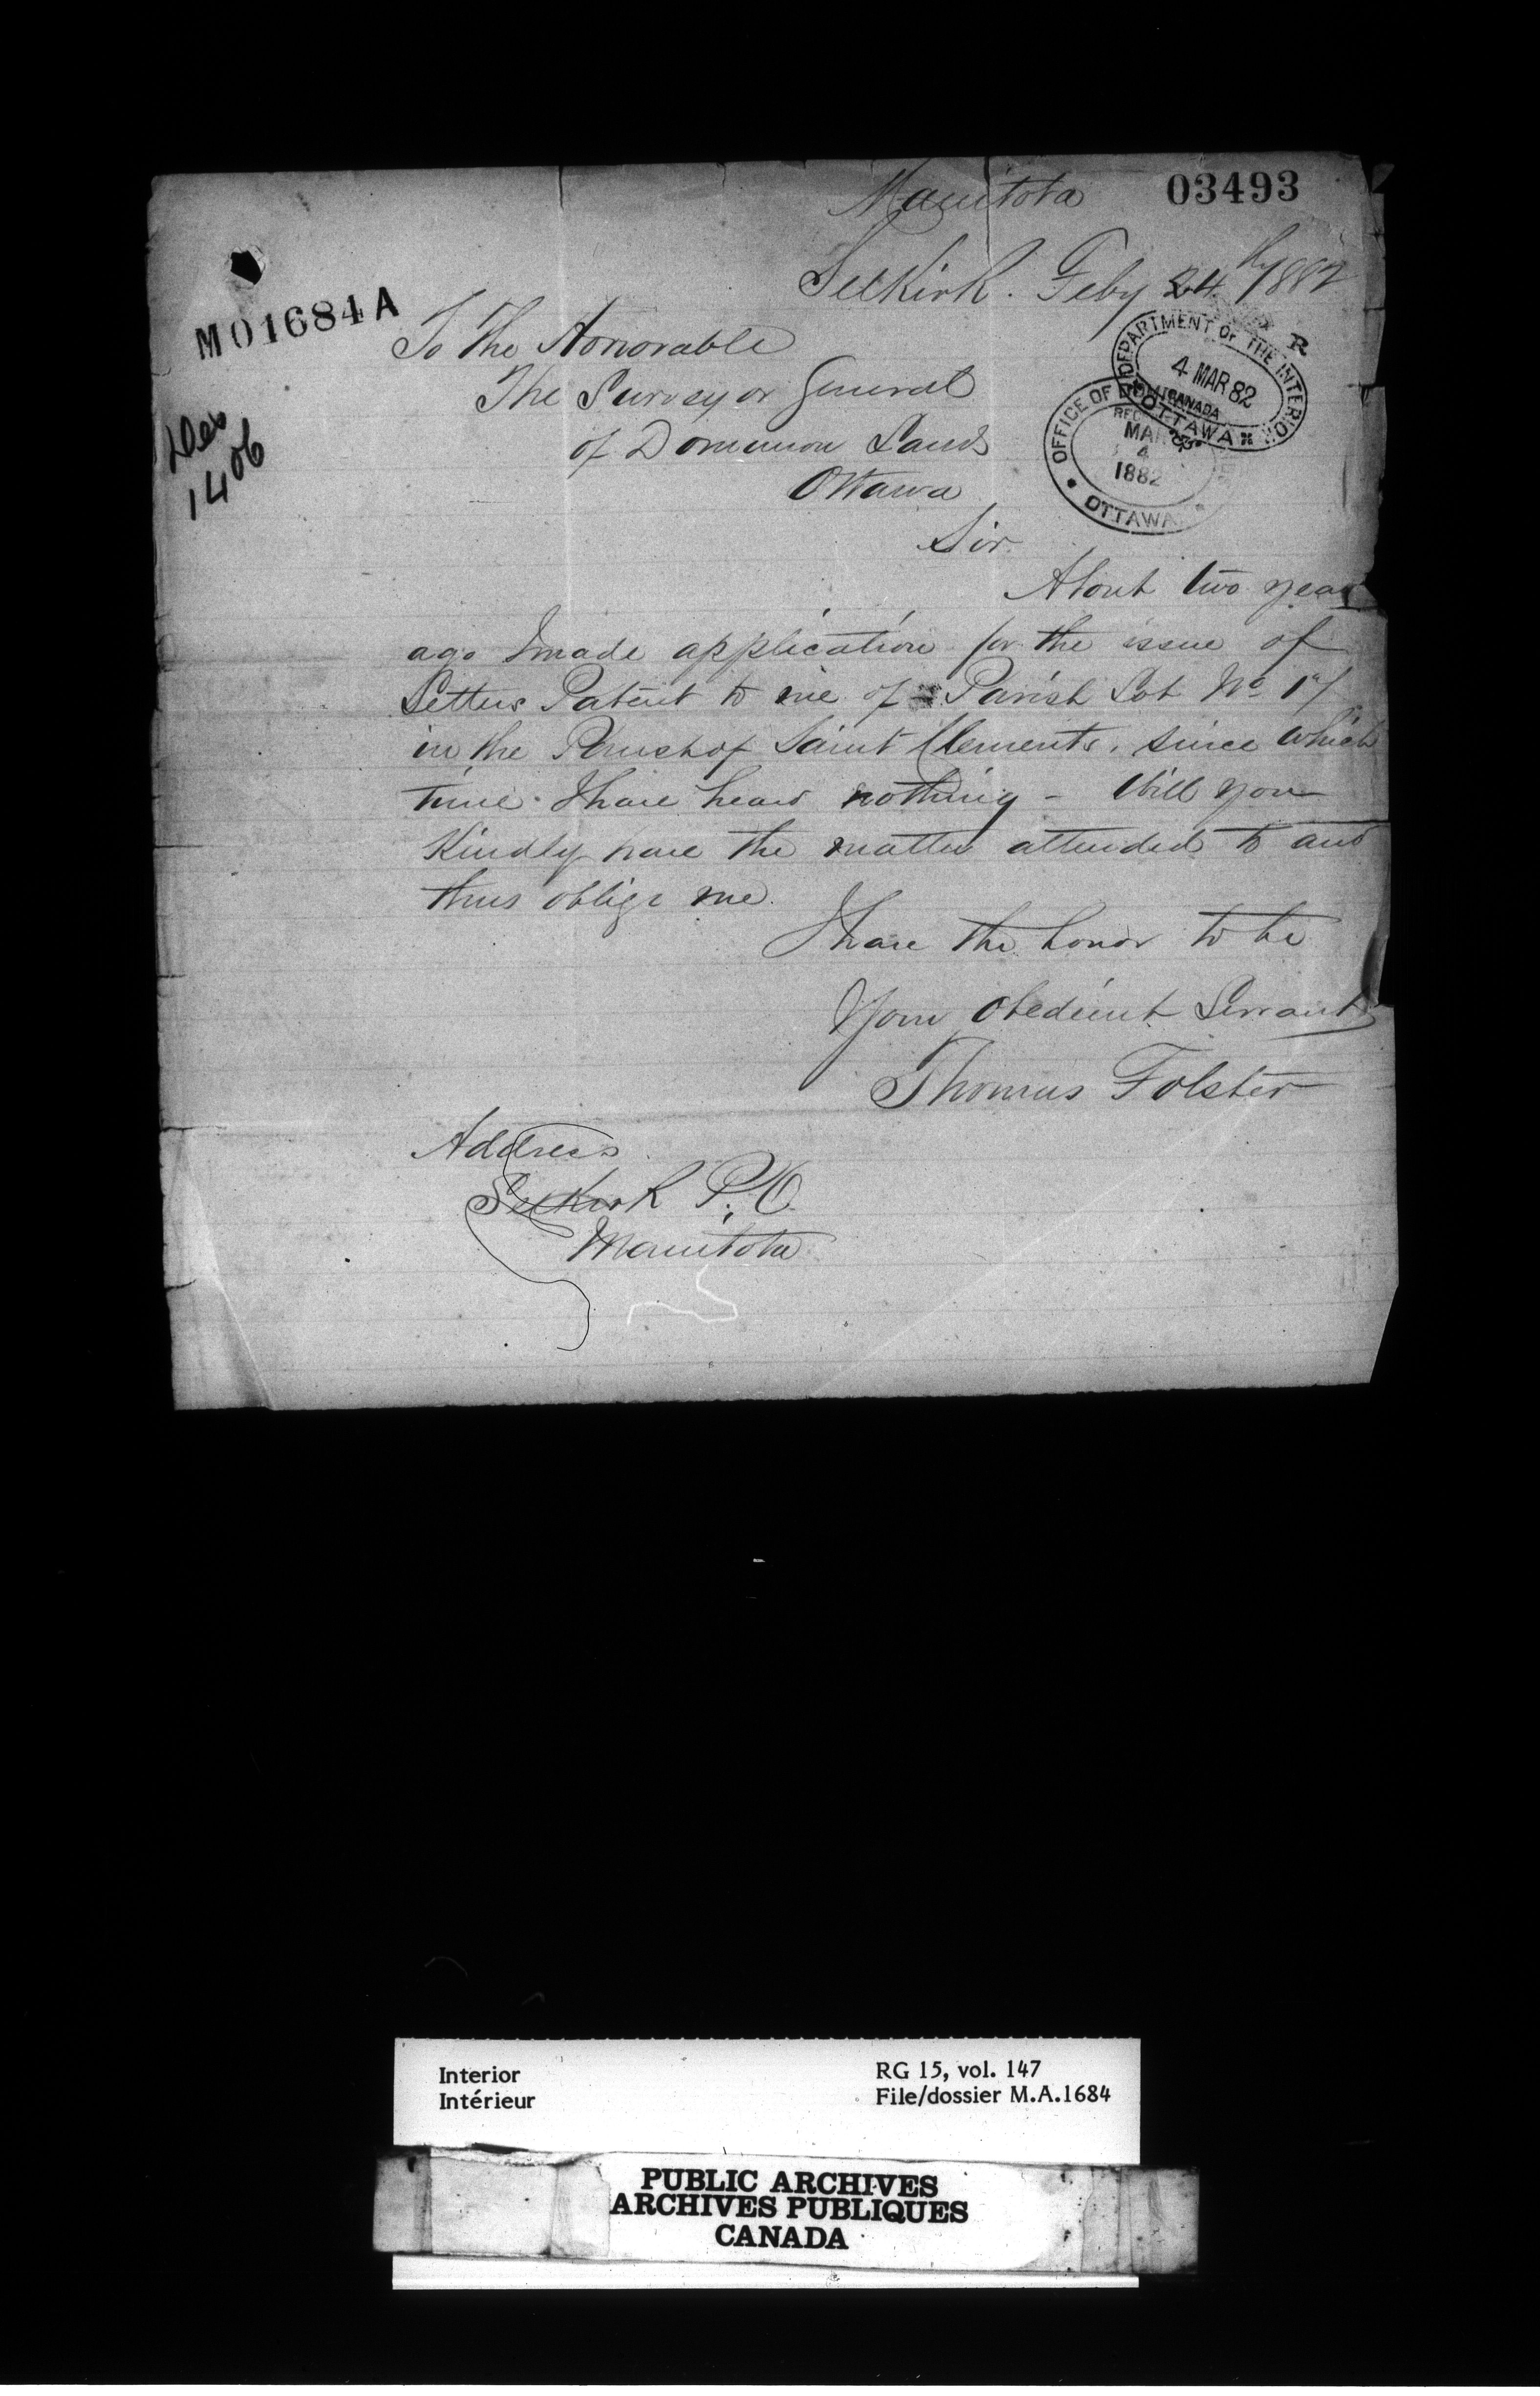 Manitoba
03493
Selkirk. Feby 24th 1882
M01684A
To The Honorable
The Surveyor General
of Dominion Lands
Ottawa
1406
DEPARTMENT OF THE INTERIOR
4 MAR 82
CANADA
OTTAWA
R
OFFICE OF
MAR
4
1882
OTTAWA
Sir
About two years
ago I made application for the issue of
Letters Patent to me of Parish Lot No 17
in the Parish of Saint Clements, since which
time I have heard nothing - Will you
Kindly have the matter attended to and
thus oblige me.
I have the honor to be
Your Obedient Servant
Thomas Folster
Address
Selkirk P.O.
Manitoba
Interior
Intérieur
RG 15, vol. 147
File/dossier M.A.1684
PUBLIC ARCHIVES
ARCHIVES PUBLIQUES
CANADA